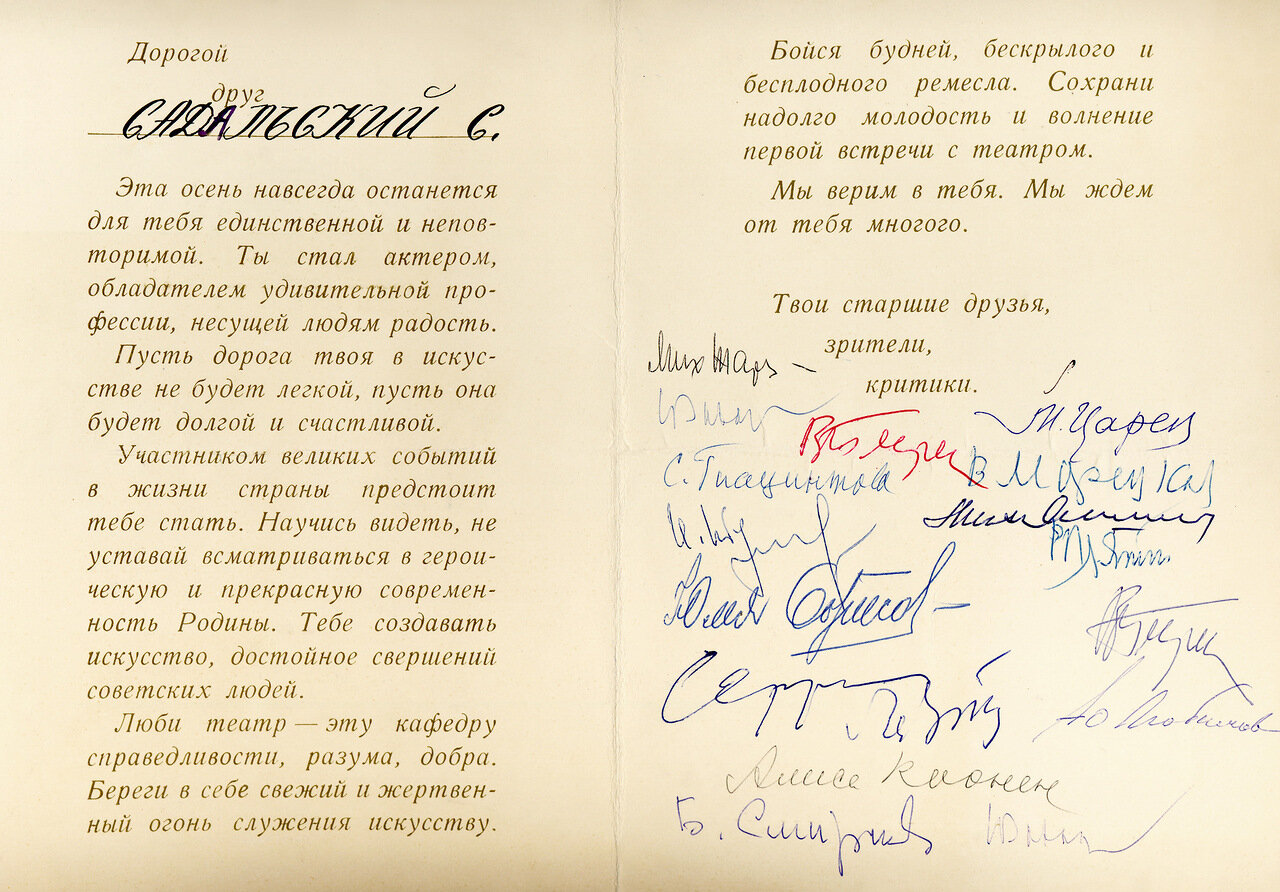 Дорогой
друг
САДАЛЬСКИЙ С.
Эта осень навсегда останется
для тебя единственной и непов-
торимой. Ты стал актером,
обладателем удивительной про-
фессии, несущей людям радость.
Пусть дорога твоя в искус-
стве не будет легкой, пусть она
будет долгой и счастливой.
Участником великих событий
в жизни страны предстоит
тебе стать. Научись видеть, не
уставай всматриваться в герои-
ческую и прекрасную современ-
ность Родины. Тебе создавать
искусство, достойное свершений
советских людей.
Люби театр — эту кафедру
справедливости, разума, добра.
Береги в себе свежий и жертвен-
ный огонь служения искусству.
Бойся будней, бескрылого и
бесплодного ремесла. Сохрани
надолго молодость и волнение
первой встречи с театром.
Мы верим в тебя. Мы ждем
от тебя многого.
Твои старшие друзья,
зрители,
критики.
Мих Жаров
М. Царев
С. Гиацинтова
В Марецкая
Юлия Борисова
Ю Любимов
Алиса Коонен
Б. Смирнов